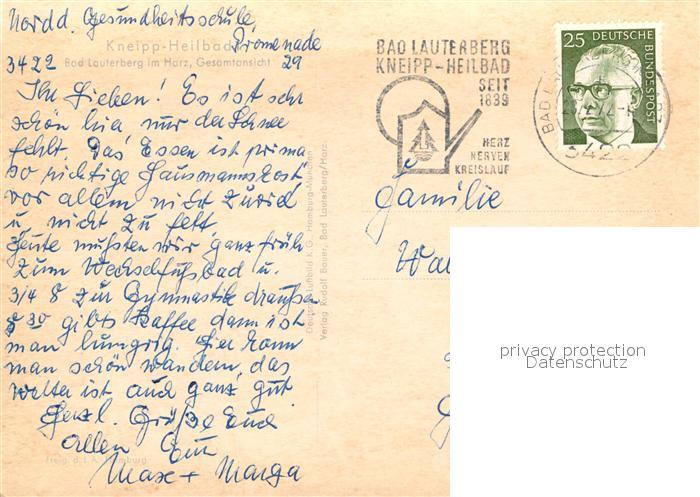 Nordd. Gesundheitsschule,
Kneipp-Heilbad
Promenade
3422 Bad Lauterberg im Harz, Gesamtansicht 29
Ihr Lieben! Es ist sehr
schön hier nur der Schnee
fehlt. Das Essen ist prima
so richtige Hausmannskost,
vor allem nicht zuviel
u. nicht zu fett.
Heute mußten wir ganz früh
zum Wechselfußbad u.
3/4 8 zur Gymnastik draußen
8 30 gibts Kaffee dann ist
man hungrig. Hier kann
man schön wandern, das
Wetter ist auch ganz gut.
Herzl. Grüße Euch
allen Eure
Max + Marga
Freig. d. L.A. Hamburg
Deutsche Luftbild K.G. Hamburg-München
Verlag Rudolf Bauer, Bad Lauterberg/Harz
BAD LAUTERBERG
KNEIPP-HEILBAD
SEIT
1839
HERZ
NERVEN
KREISLAUF
25 DEUTSCHE
BUNDESPOST
BAD
3422
Familie
privacy protection
Datenschutz